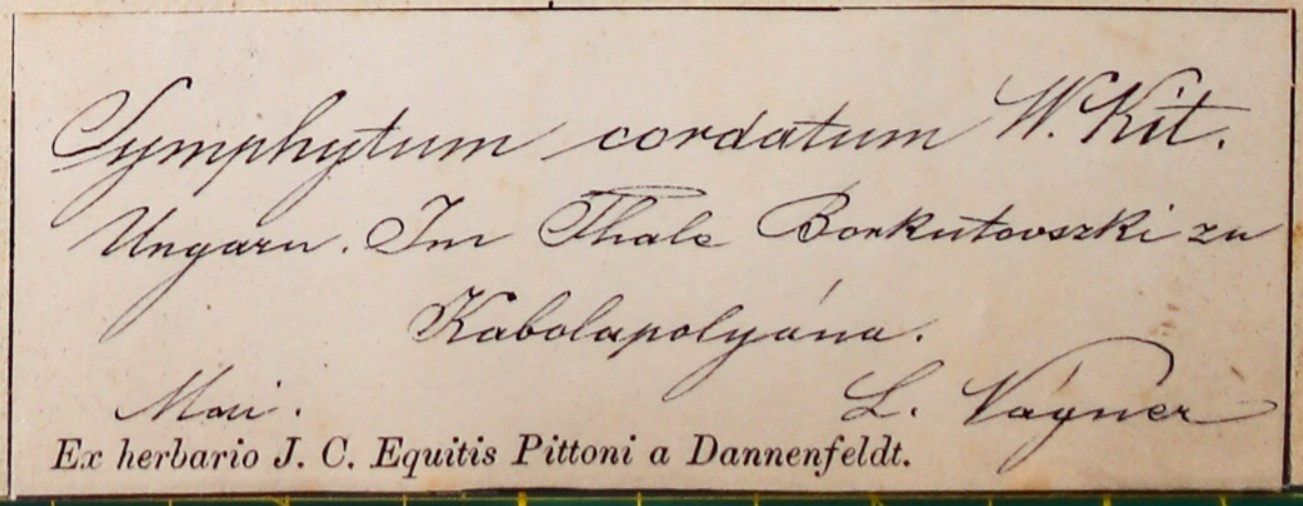 Symphytum cordatum W. Kit.
Ungarn. Im Thale Borkutovszki zu
Kabolapolyána.
Mai. L. Vágner
Ex herbario J. C. Equitis Pittoni a Dannenfeldt.